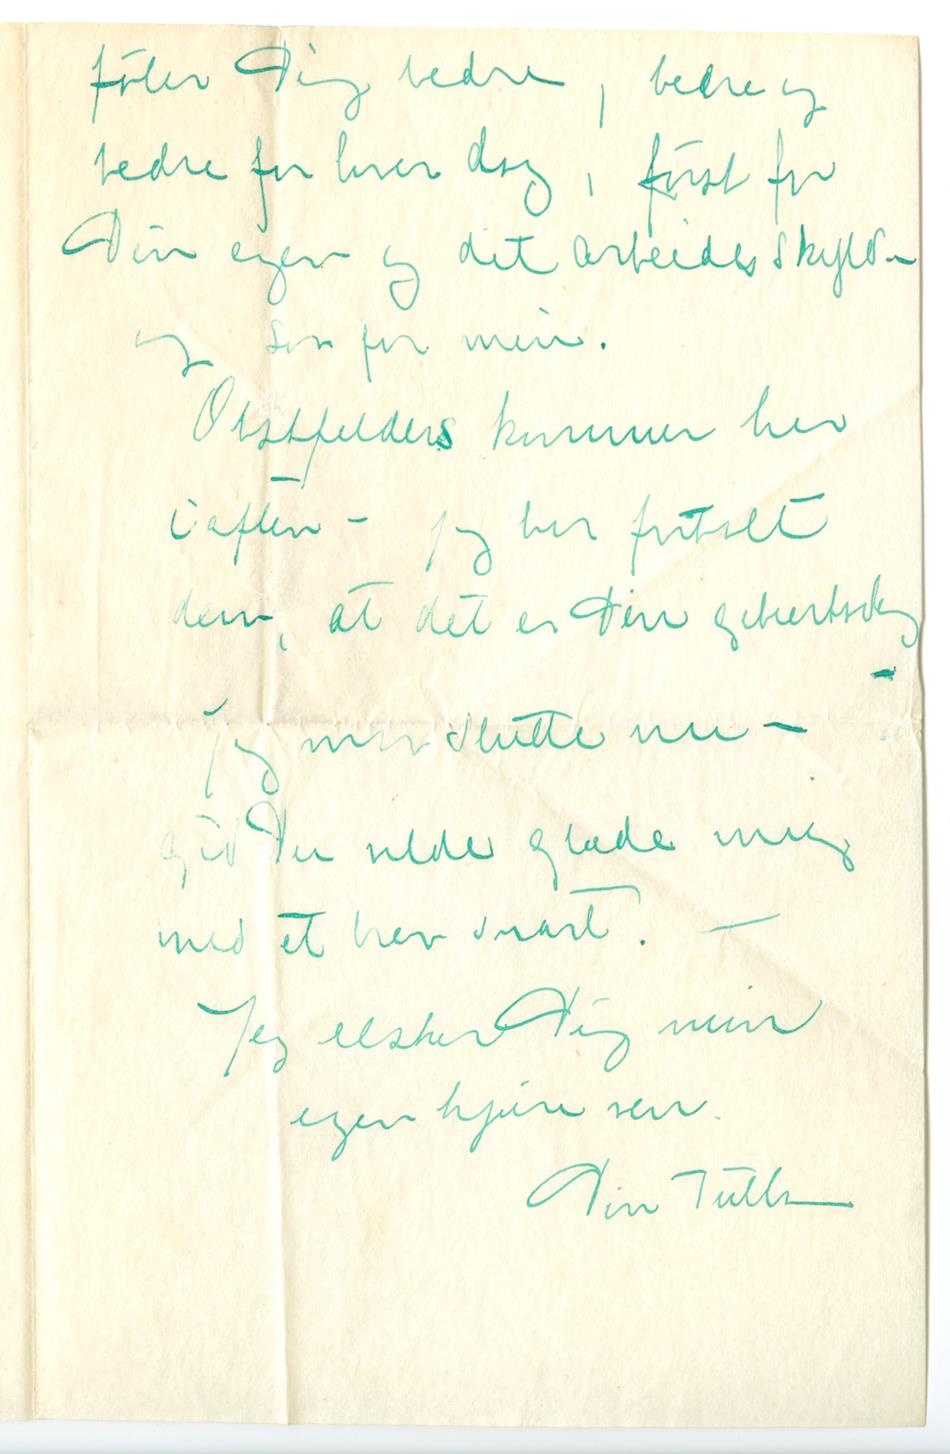 föler Dig bedre, bedre og
bedre for hver dag, först for
Din egen og dit arbeides skyld –
og saa for min.
Obstfelders kommer her
iaften – jeg har fortalt
dem, at det er Din geburtsdag
–
Jeg maa slutte nu –
gid Du vilde glæde mig
med et brev snart! –
Jeg elsker Dig min
egen kjære ven.
Din Tulla